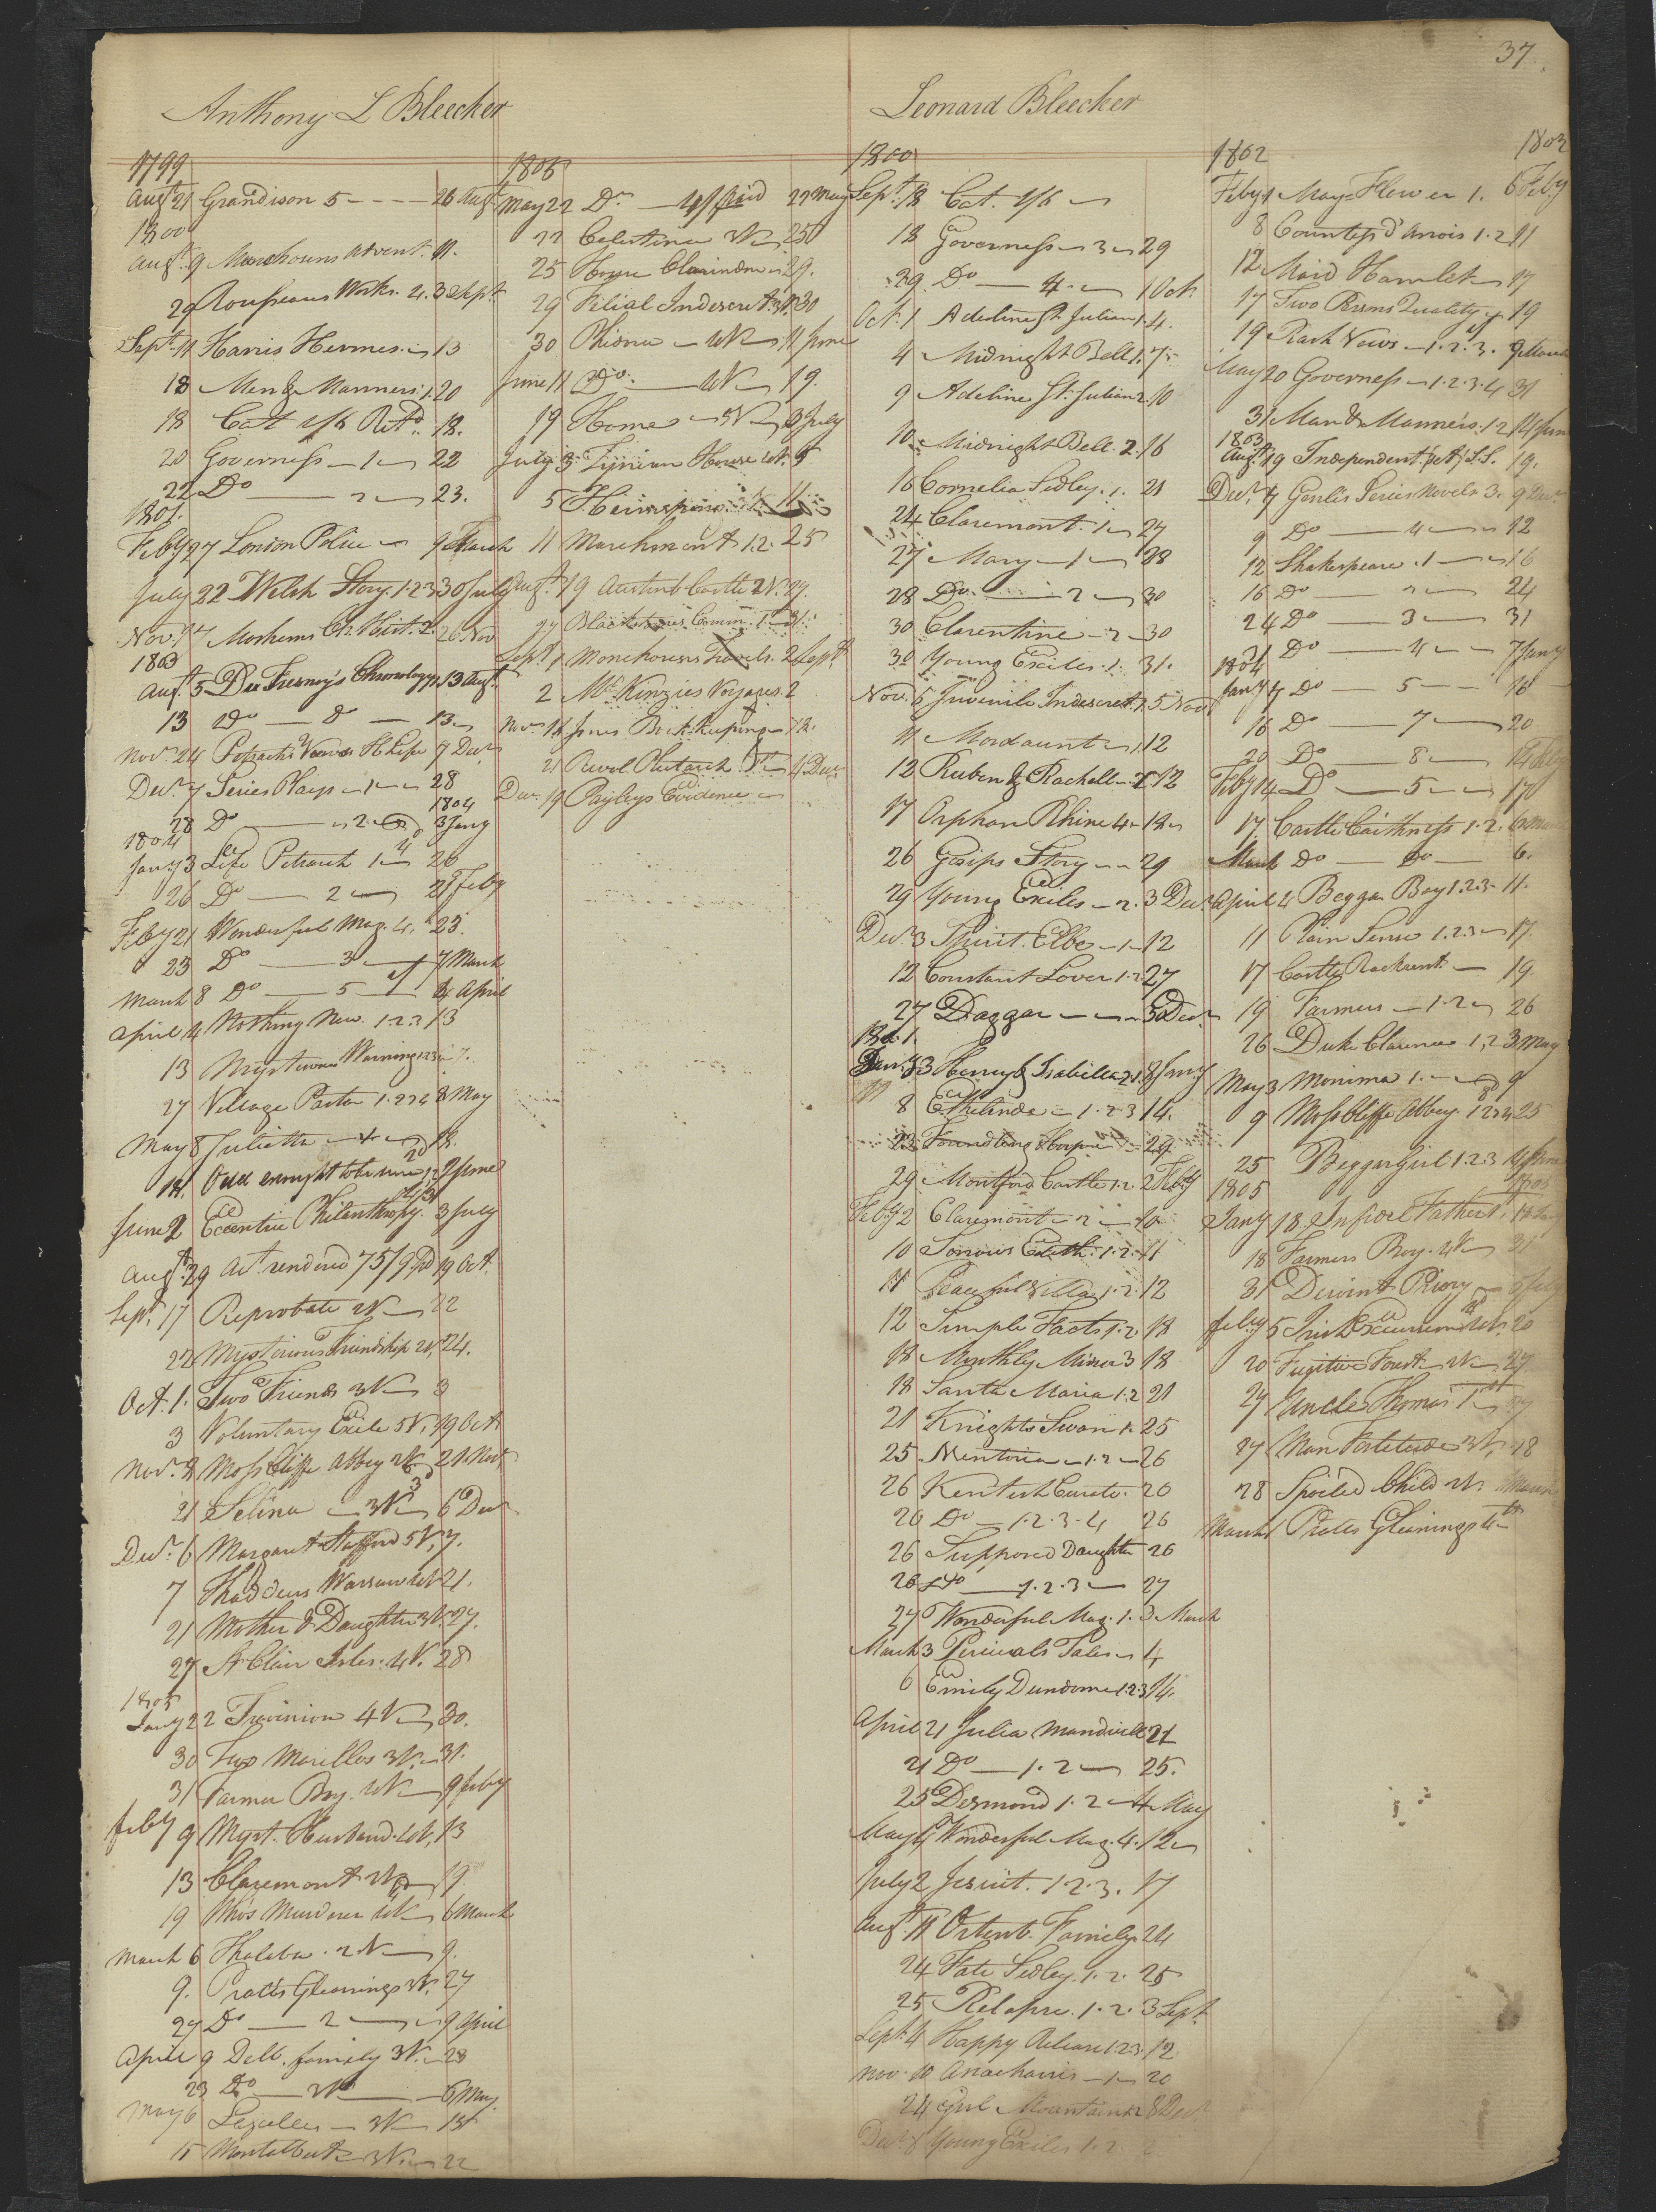 37
Anthony L Bleecker
1799
Augt 21 Grandison 5 - - - - 26 Augt
1800
Augt 9 Moorhouns Advent. 11.
29 Rouseaus Works. 4. 3 Sept
Sept. 11 Harris Hermes. 13
18 Men & Manners. 1. 20
18 Catt 1/6 Retd. 18.
20 Governess - 1 - 22
22 Do - 2 - 23.
1801.
Feby 27 London Police - 9 March
July 22 Welsh Story. 1.2.3 30 July
Novr 17 Moshems Ch. Hist. 2. 26 Nov
1803
Augt 5 Du Fresnoy's Chronology 2 13 Augt
13 Do - Do - 13
Novr 24 Petrachs View H Life 7 Decr
Decr 7 Series Plays - 1 - 28
1804
28 Do - 2 - 3 Jany
1804
Jany 3 Life Petrarch 1 - 26
26 Do - 2 - 21 Feby
Feby 21 Wonderful Mag. 4. 23.
23 Do - 3 - 7 March
March 8 Do - 5 - 4 April
April 4 Nothing New. 1.2.3 13
13 Mysterious Warnings 1234 27.
27 Village Pastor 1.2.3.4 8 May
May 8 Julietta - 4 - 18.
18. Odd enought to be sure 1.2 2 June
June 2 Eccentric Philanthropy. 3 July
Augt 29 Act. rendered 75/9 Pd 19 Oct.
Sept. 17 Reprobate 2V - 22
22 Mysterious Friendship 2V, 24.
Oct. 1. Two Friends 3V - 3
3 Voluntary Exile 5V, 19 Oct
Novr 8 Moss Cliffe Abbey 2V. 21 Nov
21 Selina - 3V - 6 Decr
Decr 6 Margaret Stafford 5V, 7.
7 Thaddeus Warsaw 4V 21.
21 Mother & Daughter 3V. 27.
27 St Clair Isles. 4V. 28
1805
Jany 22 Trevinion 4V - 30.
30 Two Marillos 3V. - 31.
31 Farmer Boy. 4V - 9 feby
feby 9 Myst. Husband. 4V, 13
13 Claremont 2V - 19
19 Whos Murderer 4V - 6 March
March 6 Thalaba. 2V - 9.
9. Pratts Gleanings 3V. 27
27 Do - 2 - 9 April
April 9 Delb. family 3V. - 23
23 Do - 2V - 6 May
May 6 Lazelles - 3V - 15
15 Montalbert - 3V. - 22
1805
May 22 Do - paid 22 May
22 Celestina 3V - 25
25 House Clarindon 29.
29 Filial Indiscret. 3V. 30
30 Phidna - 4V - 11 June
June 11 Do - 4V - 19.
19 Home - 5V - 3 July
July 3 Tynian House 4V. 5
5 Heir 11
11 Marchmont 1.2. 25
Augt 19 Austenb. Castle 2V. 27.
27 Blackstones Comm. 1st - 31
Sept. 1 Monehouses Travels. 2 Sept.
2 McKinzies Voyages. 2
Novr 18 Jones Book keeping - 18.
21 Revol Plutarch 1st - 4 Decr
Decr 19 Payleys Evidence -
Leonard Bleecker
1800
Sept. 18 Cat. 1/6 -
18 Governess - 3 - 29
29. Do - 4 - 1 Oct.
Oct. 1 Adeline St Julian 1. 4.
4 Midnight Bell 1. 7.
9 Adeline St. Julian 2. 10
10 Midnight Bell. 2. 16
16 Cornelia Sedley. 1. 21
24 Claremont. 1 - 27
27 Mary - 1 - 28
28 Do. - 2 - 30
30 Clarentine - 2 - 30
30 Young Exiles. 1. 31.
Nov. 5 Juvenile Indiscret. 1. 5 Nov
11 Mordaunt - 1. 12
12 Ruben & Rachell - 2 12
17 Orphan Rhine 4 - 18
26 Gosips Story - - 29
29 Young Exiles - 2. 3 Decr
Decr 3 Spirit Elbe - 1 - 12
12 Constant Lover 1.2. 27
27 Daggar - - - 30 Decr
1801.
Jany 3 Henry & Isabella 2. 1. 8 Jany
8 Ethelinde - 1.2.3 14.
23 Foundling Hospn - 29
29 Montford Castle 1.2 2 Feby
Feby 2 Claremont - 2 - 10
10 Sorrows Edith. 1.2. 11
11 Peaceful Villa 1.2. 12
12 Simple Facts 1.2. 18
18 Monthly Mirror 3 18
18 Santa Maria 1.2 21
21 Knights Swan 1. 25
25 Mentoria - 1.2 - 26
26 Kentish Curate. 26
26 Do - 1.2.3.4 26
26 Supposed Daughter 26
26 Do - 1.2.3 - 27
27 Wonderful Mag. 1. 3 March
March 3 Percivals Tales - 4
6 Emily Dundorne 1.2.3 14.
April 21 Julia Mandville 21
21 Do - 1.2 - 25.
25 Desmond 1.2 - 4 May
May 4 Wonderful Mag. 4. 12
July 2 Jesuit. 1.2.3. 17
Augt 11 Ortenb. Family 24
24 Fate Sedley. 1.2. 25
25 Relapse. 1.2. 3 Sept.
Sept. 4 Happy Release 1.2.3. 12
Nov. 10 Anacharsis - 1 - 20
24 Girl Mountain 1.2 8 Decr
Decr 8 Young Exiles 1.2.
1802
1802
Feby 1 May-Flower 1. 6 Feby
8 Countess d'Anois 1.2 11
12 Maid Hamlet - 17
17 Two Persons Quality - 19
19 Rash Vows - 1.2.3. 9 March
May 20 Governess - 1.2.3.4 31
31 Man & Manners. 1.2 14 June
1803
Augt 19 Independent 19.
Decr 7 Genlis Series Novels 3. 9 Decr
9 Do - 4 - 12
12 Shakespeare. 1 - 16
16 Do - 2 - 24
24 Do - 3 - 31
31 Do - 4 - 7 Jany
1804
Jany 7 Do - 5 - 16
16 Do - 7 - 20
20 Do - 8 - 14 Feby
Feby 14 Do - 5 - 17
17. Castle Caithness 1.2. 6 March
March Do - Do - 6.
April 4 Beggar Boy 1.2.3 - 11.
11 Plain Sense 1.2.3 - 17.
17 Castle Rackrent - 19.
19 Farmers - 1.2 - 26
26 Duke Clarence 1,2 3 May
May 3 Monima 1. - 9
9 Moss Cliffe Abbey. 1234 25
25 Beggar Girl 1.2.3 4 June
1805
1805
Jany 18 Infidel Father 1. 18 Jany
18 Farmers Boy. 4V - 31
31 Derwint Priory - 5 feby
feby 5 Irish Excursion 4V. 20
20 Fugitive Forest - 2V - 27
27 Uncle Thomas 1st - 27
27 Man Fortitude 3V, 28
28 Spoiled Child 2V. March
March 1 Pratts Gleanings 4th